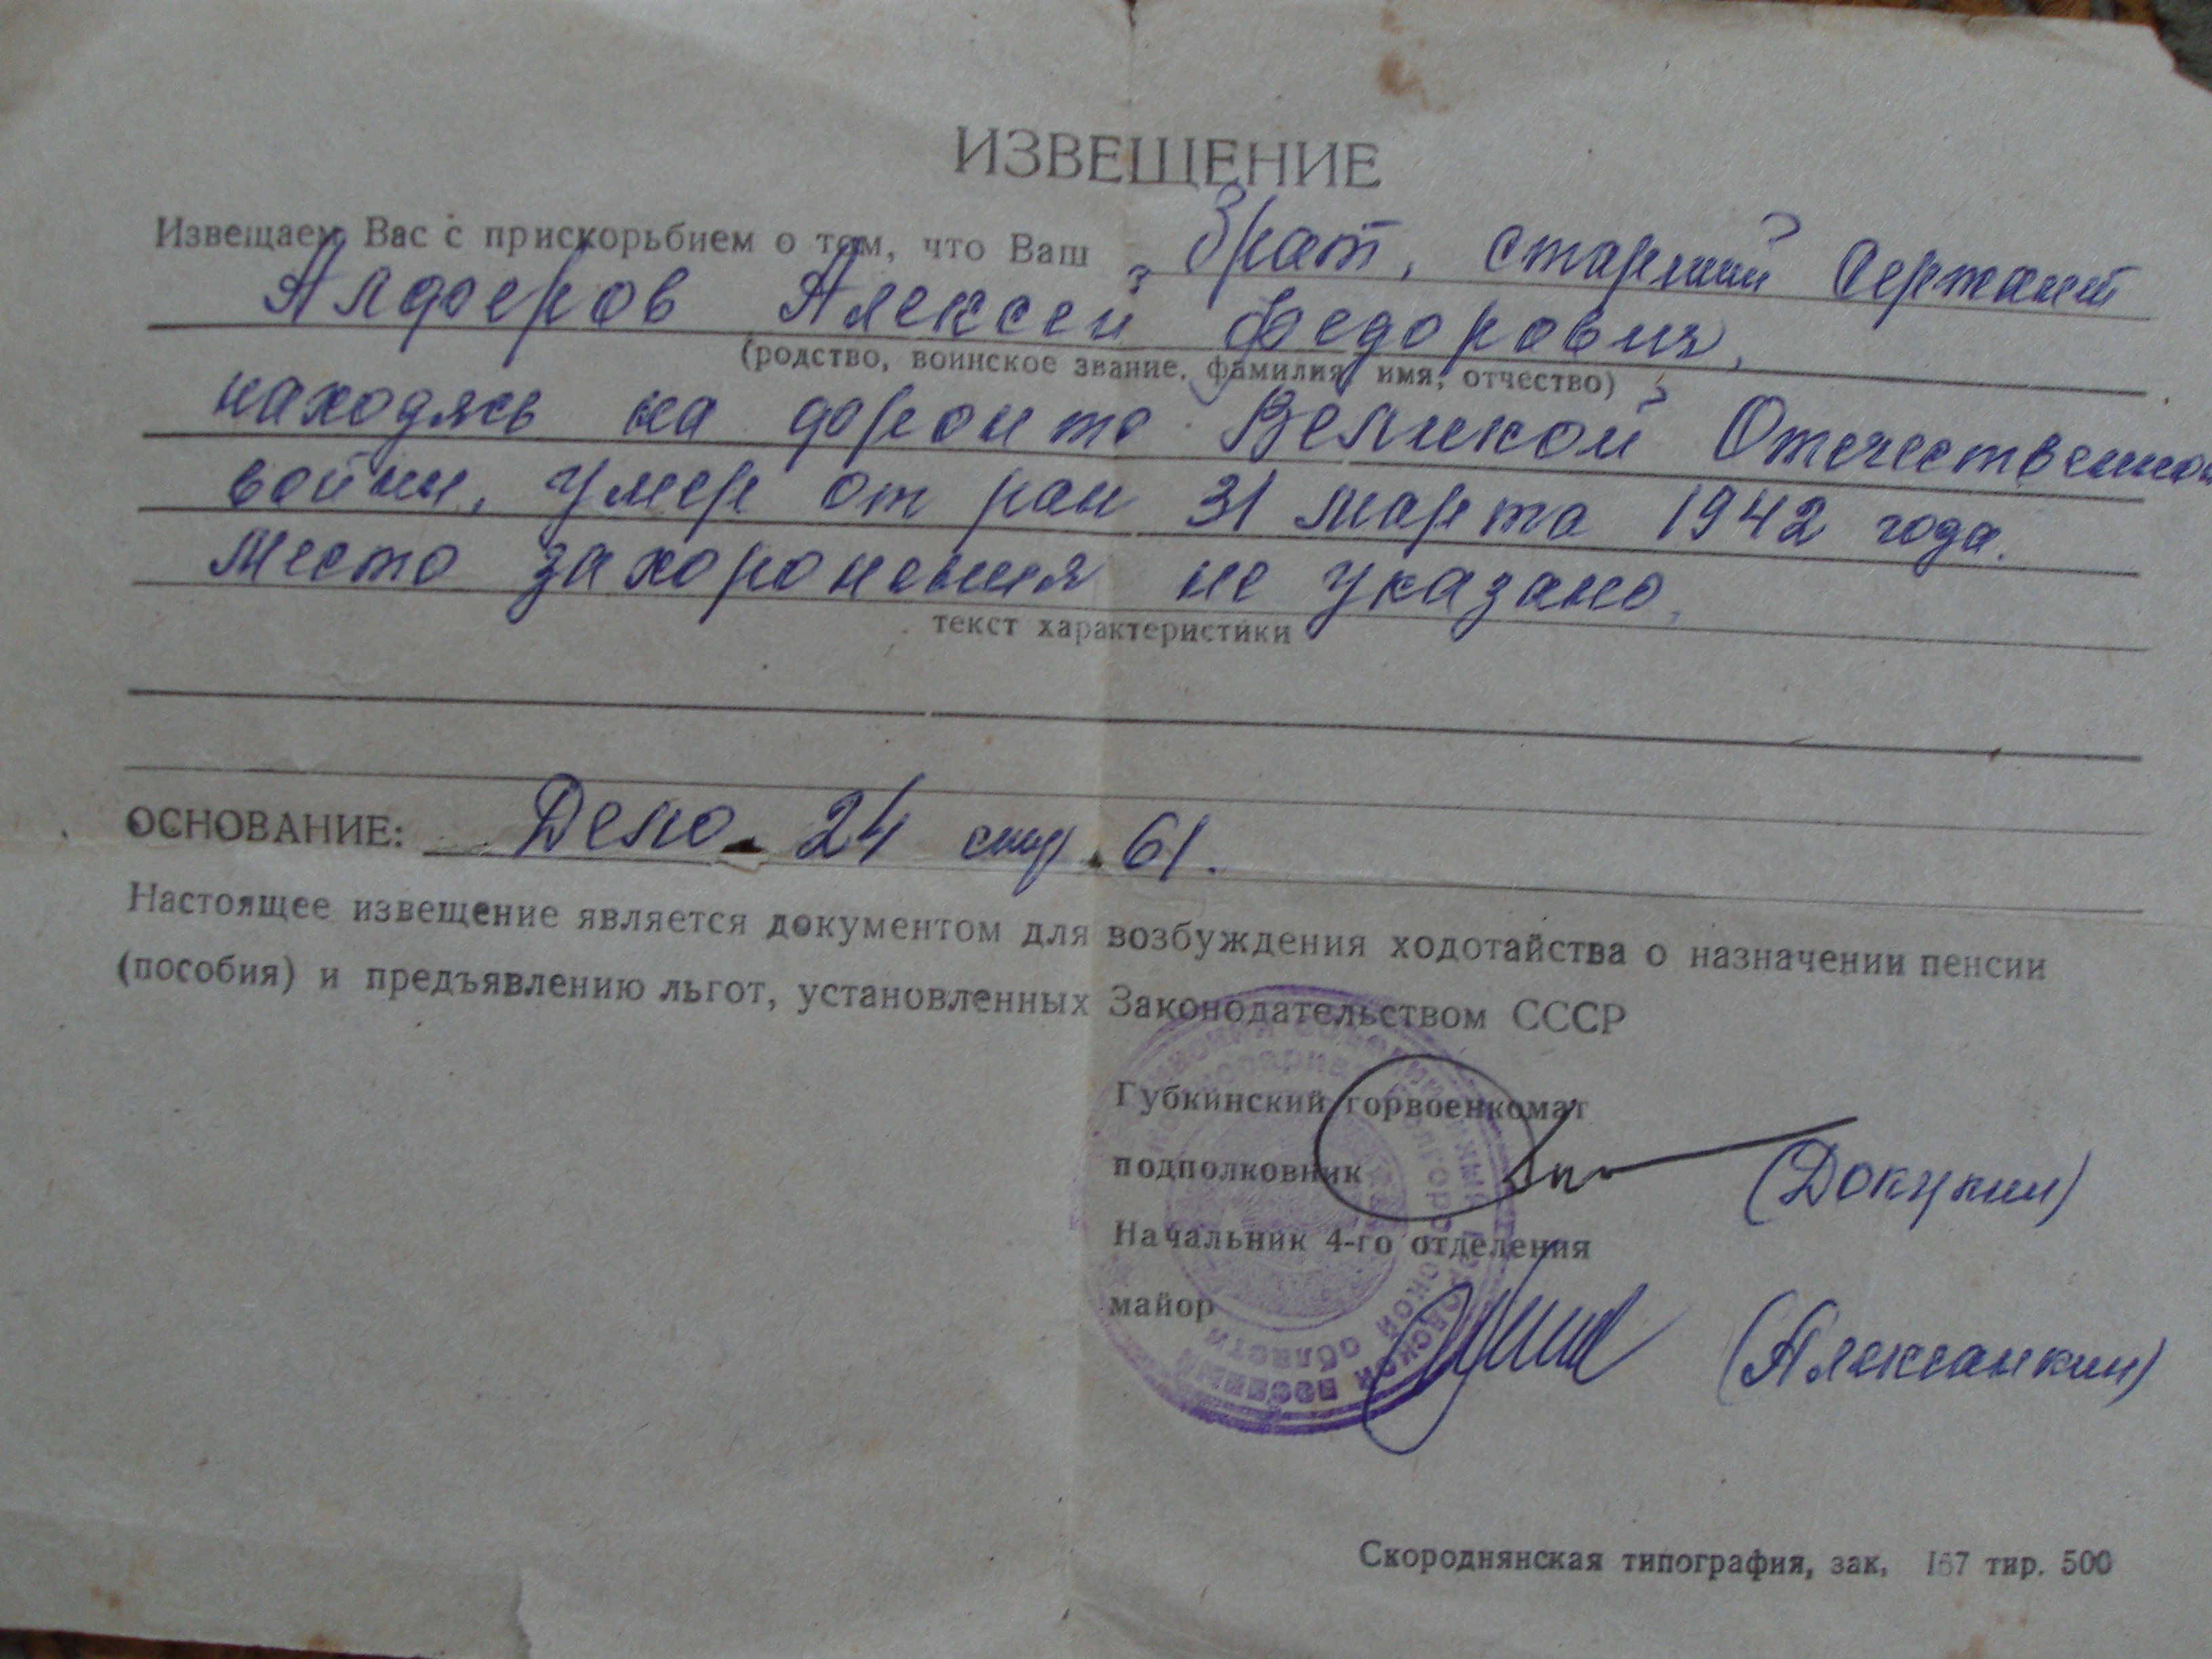 ИЗВЕЩЕНИЕ
Извещаем Вас с прискорьбием о том, что Ваш брат, старший сержант
Алферов Алексей Федорович,
(родство, воинское звание, фамилия, имя, отчество)
находясь на фронте Великой Отечественной
войны, умер от ран 31 марта 1942 года.
Место захоронения не указано.
текст характеристики
ОСНОВАНИЕ: Дело 24 стр. 61.
Настоящее извещение является документом для возбуждения ходотайства о назначении пенсии
(пособия) и предъявлению льгот, установленных Законодательством СССР
Губкинский горвоенкомат
подполковник (Докукин)
Начальник 4-го отделения
майор (Алексанкин)
области
Скороднянская типография, зак. 167 тир. 500